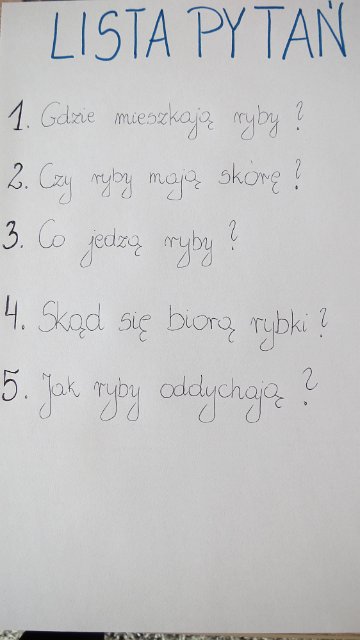 LISTA PYTAŃ
1. Gdzie mieszkają ryby?
2. Czy ryby mają skórę?
3. Co jedzą ryby?
4. Skąd się biorą rybki?
5. Jak ryby oddychają?